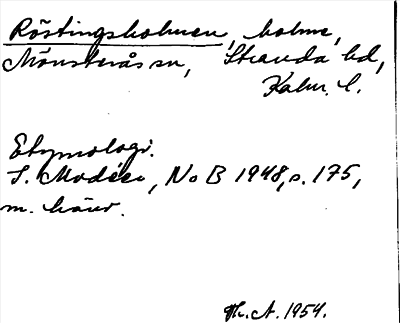 Röstingsholmen, holme,
Mönsterås sn, Stranda hd,
Kalm. l.
Etymologi.
I. Modéer, NoB 1948, s. 175,
m. hänv.
Th. A. 1954.